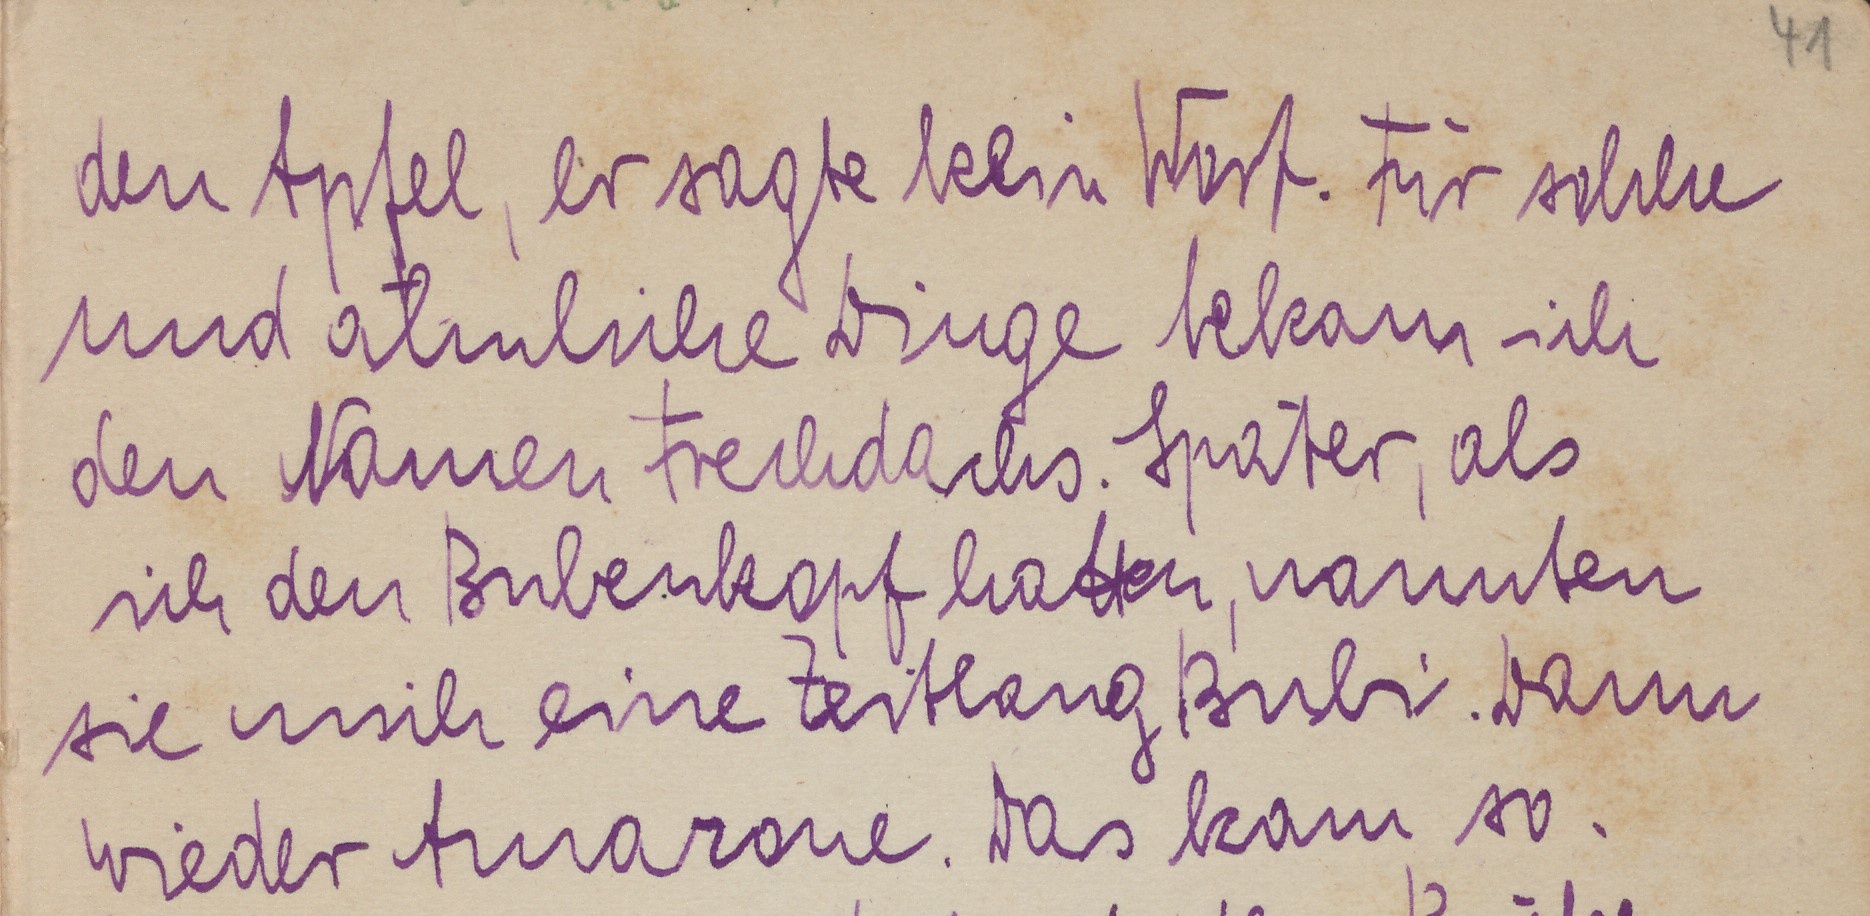 41
den Apfel, er sagte kein Wort. Für solche
und ähnliche Dinge bekam ich
den Namen Frechdachs. Später, als
ich den Bubenkopf hatten, nannten
sie mich eine Zeitlang Bubi. Dann
wieder Amazone. Das kam so.